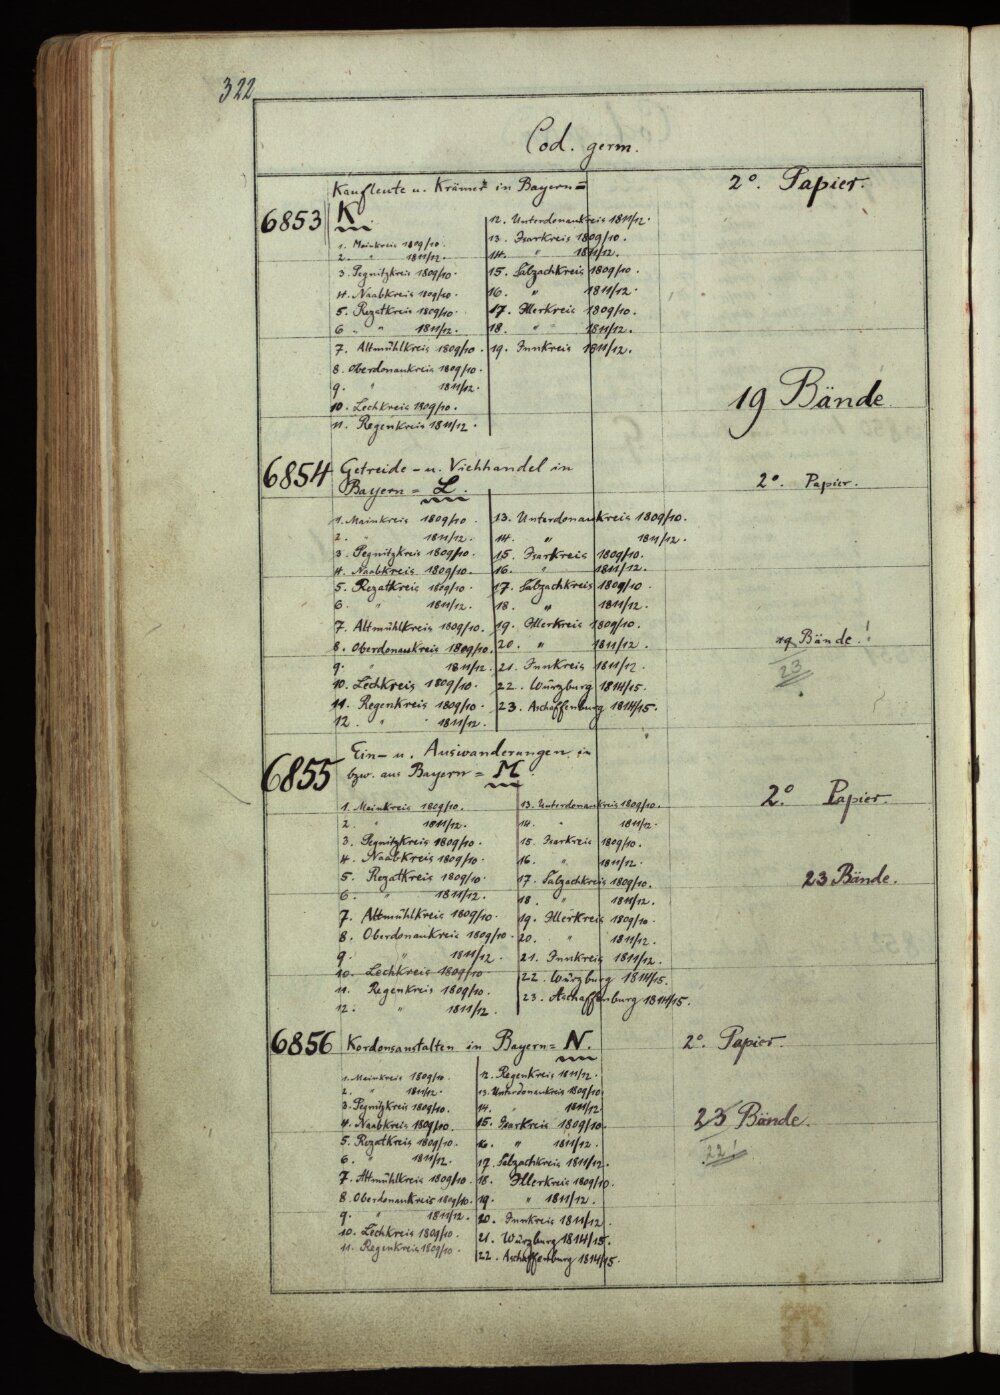 322
Cod. germ.
Kaufleute u. Krämer in Bayern =
6853 K
2°. Papier.
1. Mainkreis 1809/10.
2. " 1811/12.
3. Pegnitzkreis 1809/10.
4. Naabkreis 1809/10.
5. Rezatkreis 1809/10.
6. " 1811/12.
7. Altmühlkreis 1809/10.
8. Oberdonaukreis 1809/10.
9. " 1811/12.
10. Lechkreis 1809/10.
11. Regenkreis 1811/12.
12. Unterdonaukreis 1811/12.
13. Isarkreis 1809/10.
14. " 1811/12.
15. Salzachkreis 1809/10.
16. " 1811/12.
17. Illerkreis 1809/10.
18. " 1811/12.
19. Innkreis 1811/12.
19 Bände.
6854 Getreide- u. Viehhandel in
Bayern = L.
2°. Papier.
1. Mainkreis 1809/10.
2. " 1811/12.
3. Pegnitzkreis 1809/10.
4. Naabkreis 1809/10.
5. Rezatkreis 1809/10.
6. " 1811/12.
7. Altmühlkreis 1809/10.
8. Oberdonaukreis 1809/10.
9. " 1811/12.
10. Lechkreis 1809/10.
11. Regenkreis 1809/10.
12. " 1811/12.
13. Unterdonaukreis 1809/10.
14. " 1811/12.
15. Isarkreis 1809/10.
16. " 1811/12.
17. Salzachkreis 1809/10.
18. " 1811/12.
19. Illerkreis 1809/10.
20. " 1811/12.
21. Innkreis 1811/12.
22. Würzburg 1814/15.
23. Aschaffenburg 1814/15.
19 Bände!
23
6855 Ein- u. Auswanderungen in
bzw. aus Bayern = M.
2° Papier.
1. Mainkreis 1809/10.
2. " 1811/12.
3. Pegnitzkreis 1809/10.
4. Naabkreis 1809/10.
5. Rezatkreis 1809/10.
6. " 1811/12.
7. Altmühlkreis 1809/10.
8. Oberdonaukreis 1809/10.
9. " 1811/12.
10. Lechkreis 1809/10.
11. Regenkreis 1809/10.
12. " 1811/12.
13. Unterdonaukreis 1809/10.
14. " 1811/12.
15. Isarkreis 1809/10.
16. " 1811/12.
17. Salzachkreis 1809/10.
18. " 1811/12.
19. Illerkreis 1809/10.
20. " 1811/12.
21. Innkreis 1811/12.
22. Würzburg 1814/15.
23. Aschaffenburg 1814/15.
23 Bände.
6856 Kordonsanstalten in Bayern = N.
2°. Papier.
1. Mainkreis 1809/10.
2. " 1811/12.
3. Pegnitzkreis 1809/10.
4. Naabkreis 1809/10.
5. Rezatkreis 1809/10.
6. " 1811/12.
7. Altmühlkreis 1809/10.
8. Oberdonaukreis 1809/10.
9. " 1811/12.
10. Lechkreis 1809/10.
11. Regenkreis 1809/10.
12. Regenkreis 1811/12.
13. Unterdonaukreis 1809/10.
14. " 1811/12.
15. Isarkreis 1809/10.
16. " 1811/12.
17. Salzachkreis 1811/12.
18. Illerkreis 1809/10.
19. " 1811/12.
20. Innkreis 1811/12.
21. Würzburg 1814/15.
22. Aschaffenburg 1814/15.
23 Bände.
22!